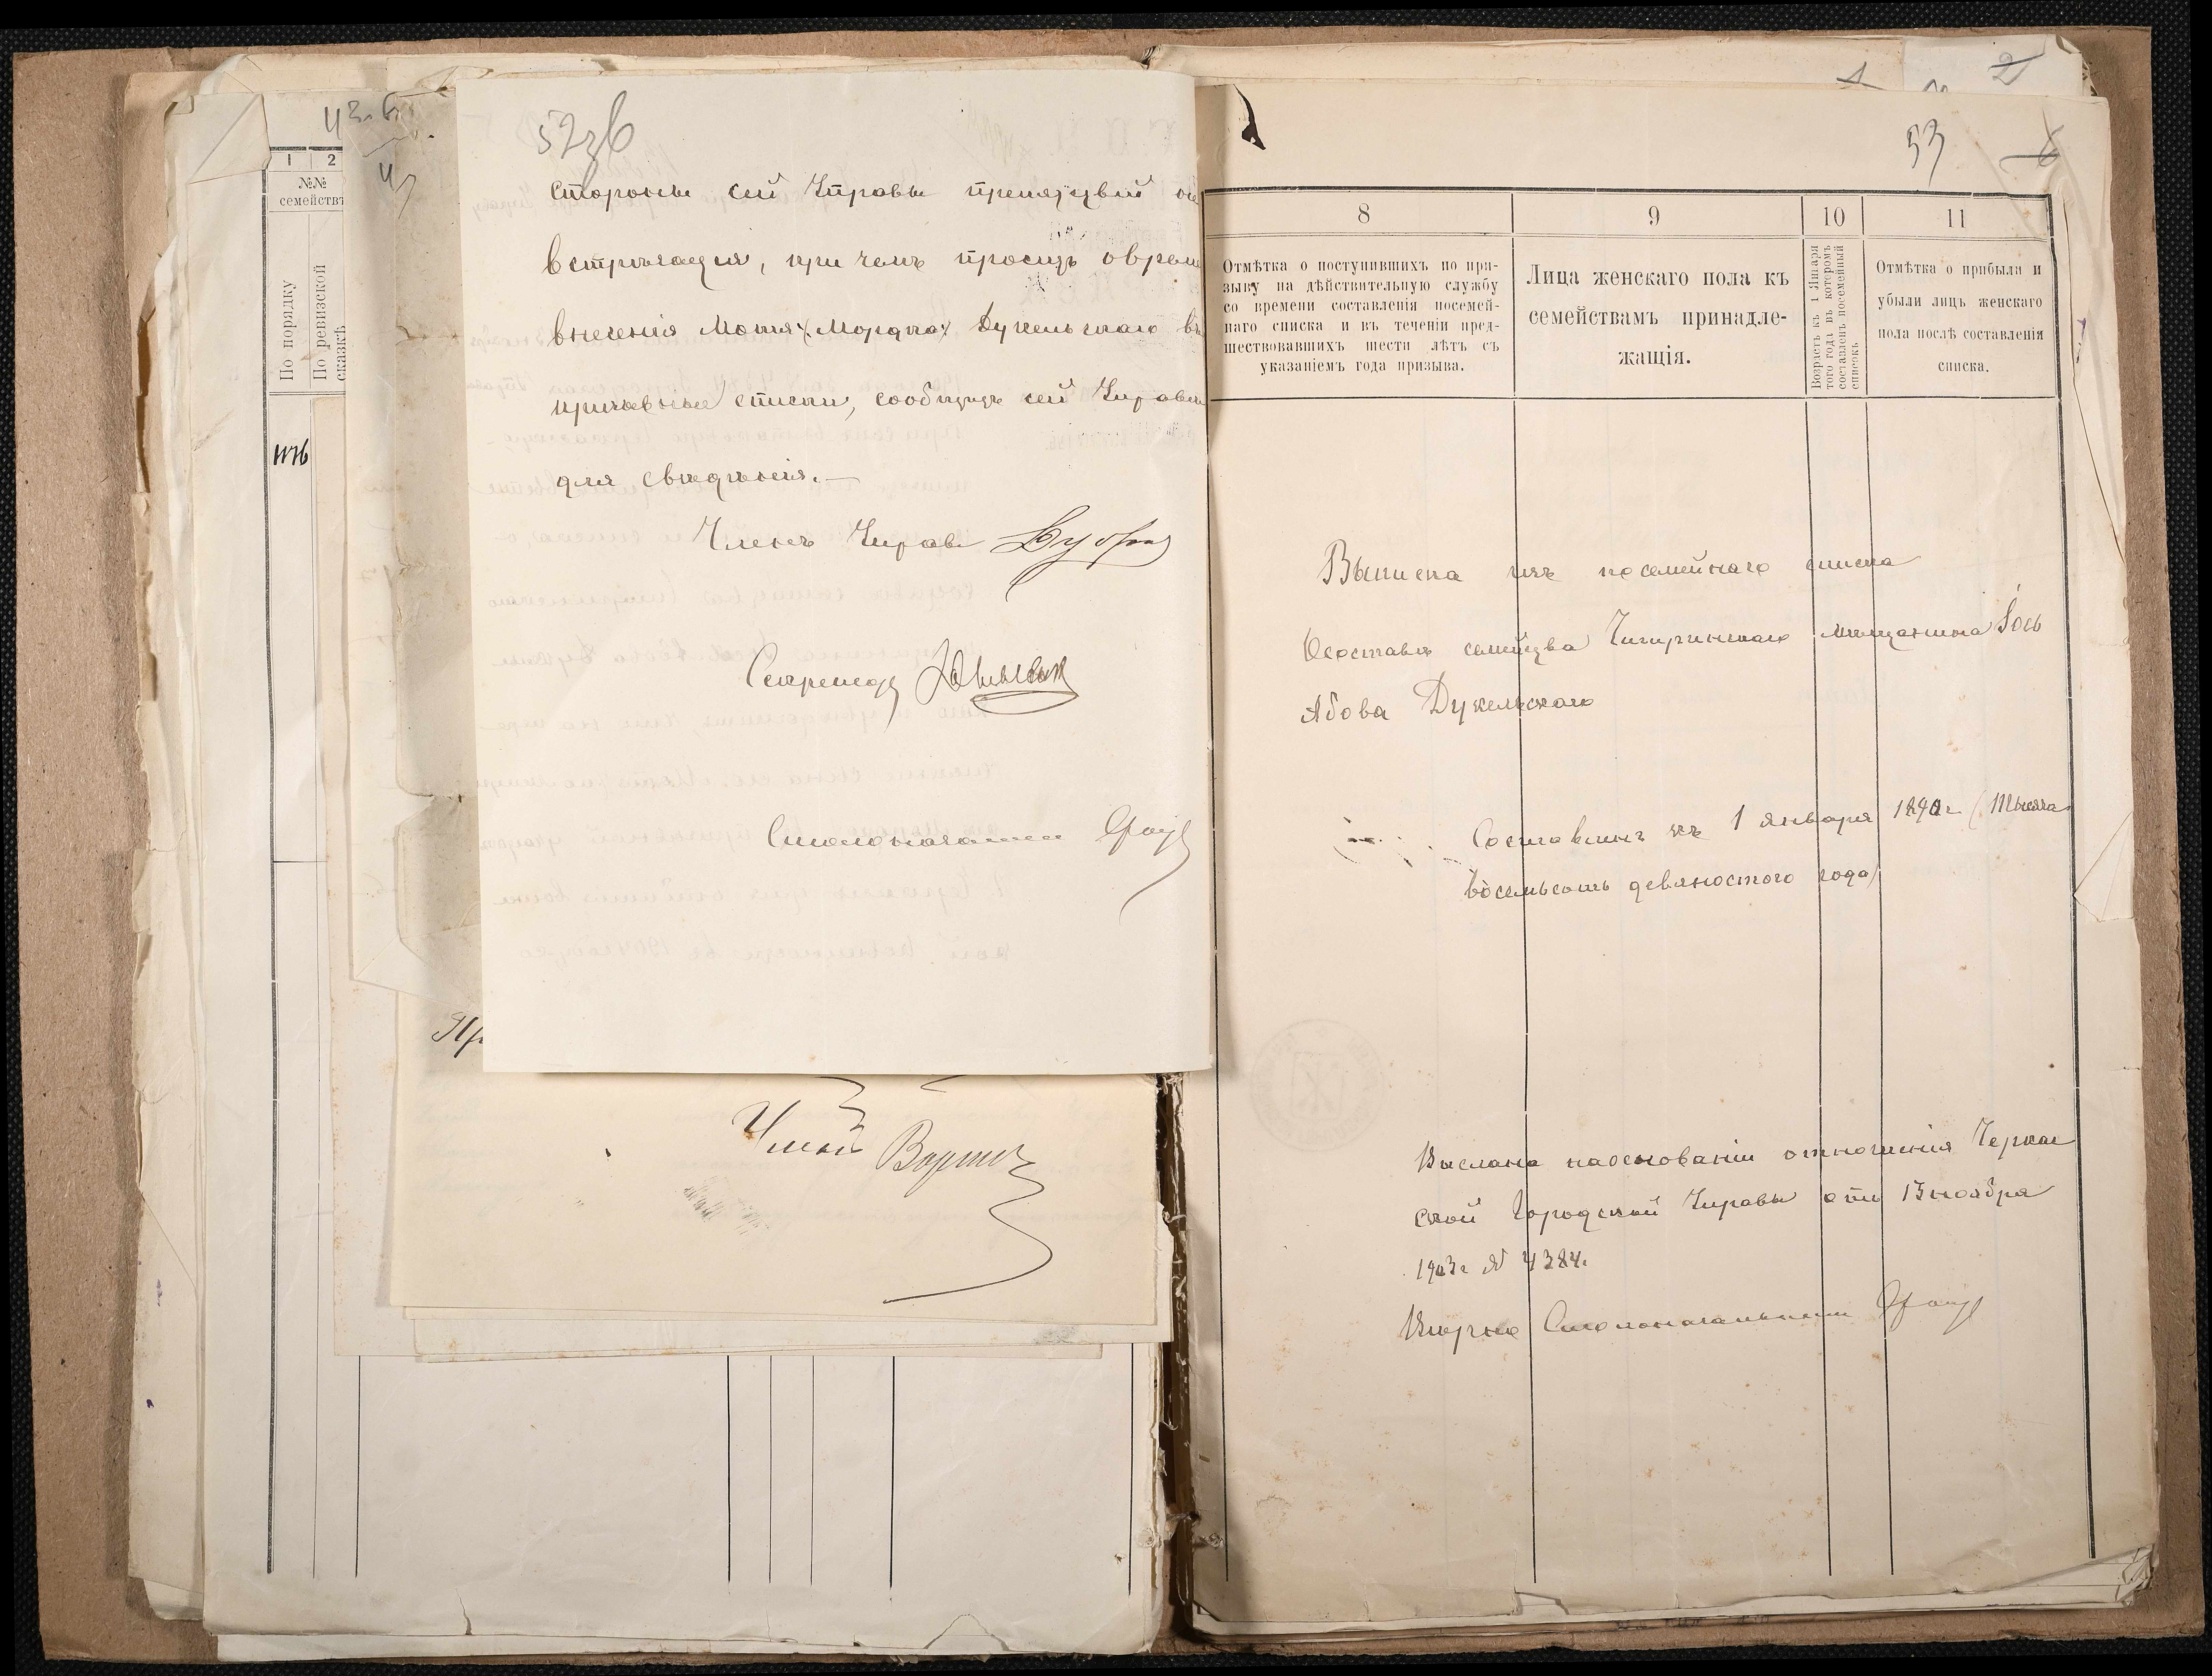 52зв
стороны сей Управы препятствій не
встрѣчается, при чемъ проситъ о времени
внесенія Мотя (Мордка) Дукельскаго въ
призывные списки, сообщить сей Управѣ
для свѣдѣнія.—
Членъ Управы
Секретарь
Столоначальникъ
1 2
№№
семействъ
По порядку
По ревизской
сказкѣ
53
8 9 10 11
Отмѣтка о поступившихъ по при-
зыву на дѣйствительную службу
со времени составленія посемей-
наго списка и въ теченіи пред-
шествовавшихъ шести лѣтъ съ
указаніемъ года призыва.
Лица женскаго пола къ
семействамъ принадле-
жащія.
Возрастъ къ 1 Января
того года въ которомъ
составленъ посемейный
списокъ.
Отмѣтка о прибыли и
убыли лицъ женскаго
пола послѣ составленія
списка.
Выписка изъ посемейнаго списка
О составѣ семейства Чигиринскаго мѣщанина Іось
Абова Дукельскаго
Составленъ къ 1 января 1890 г. (Тысяча
восемьсотъ девяностого года)
Выслана на основаніи отношенія Черкас
ской Городской Управы отъ 13 ноября
1903 г. № 4384.
Вѣрно Столоначальникъ